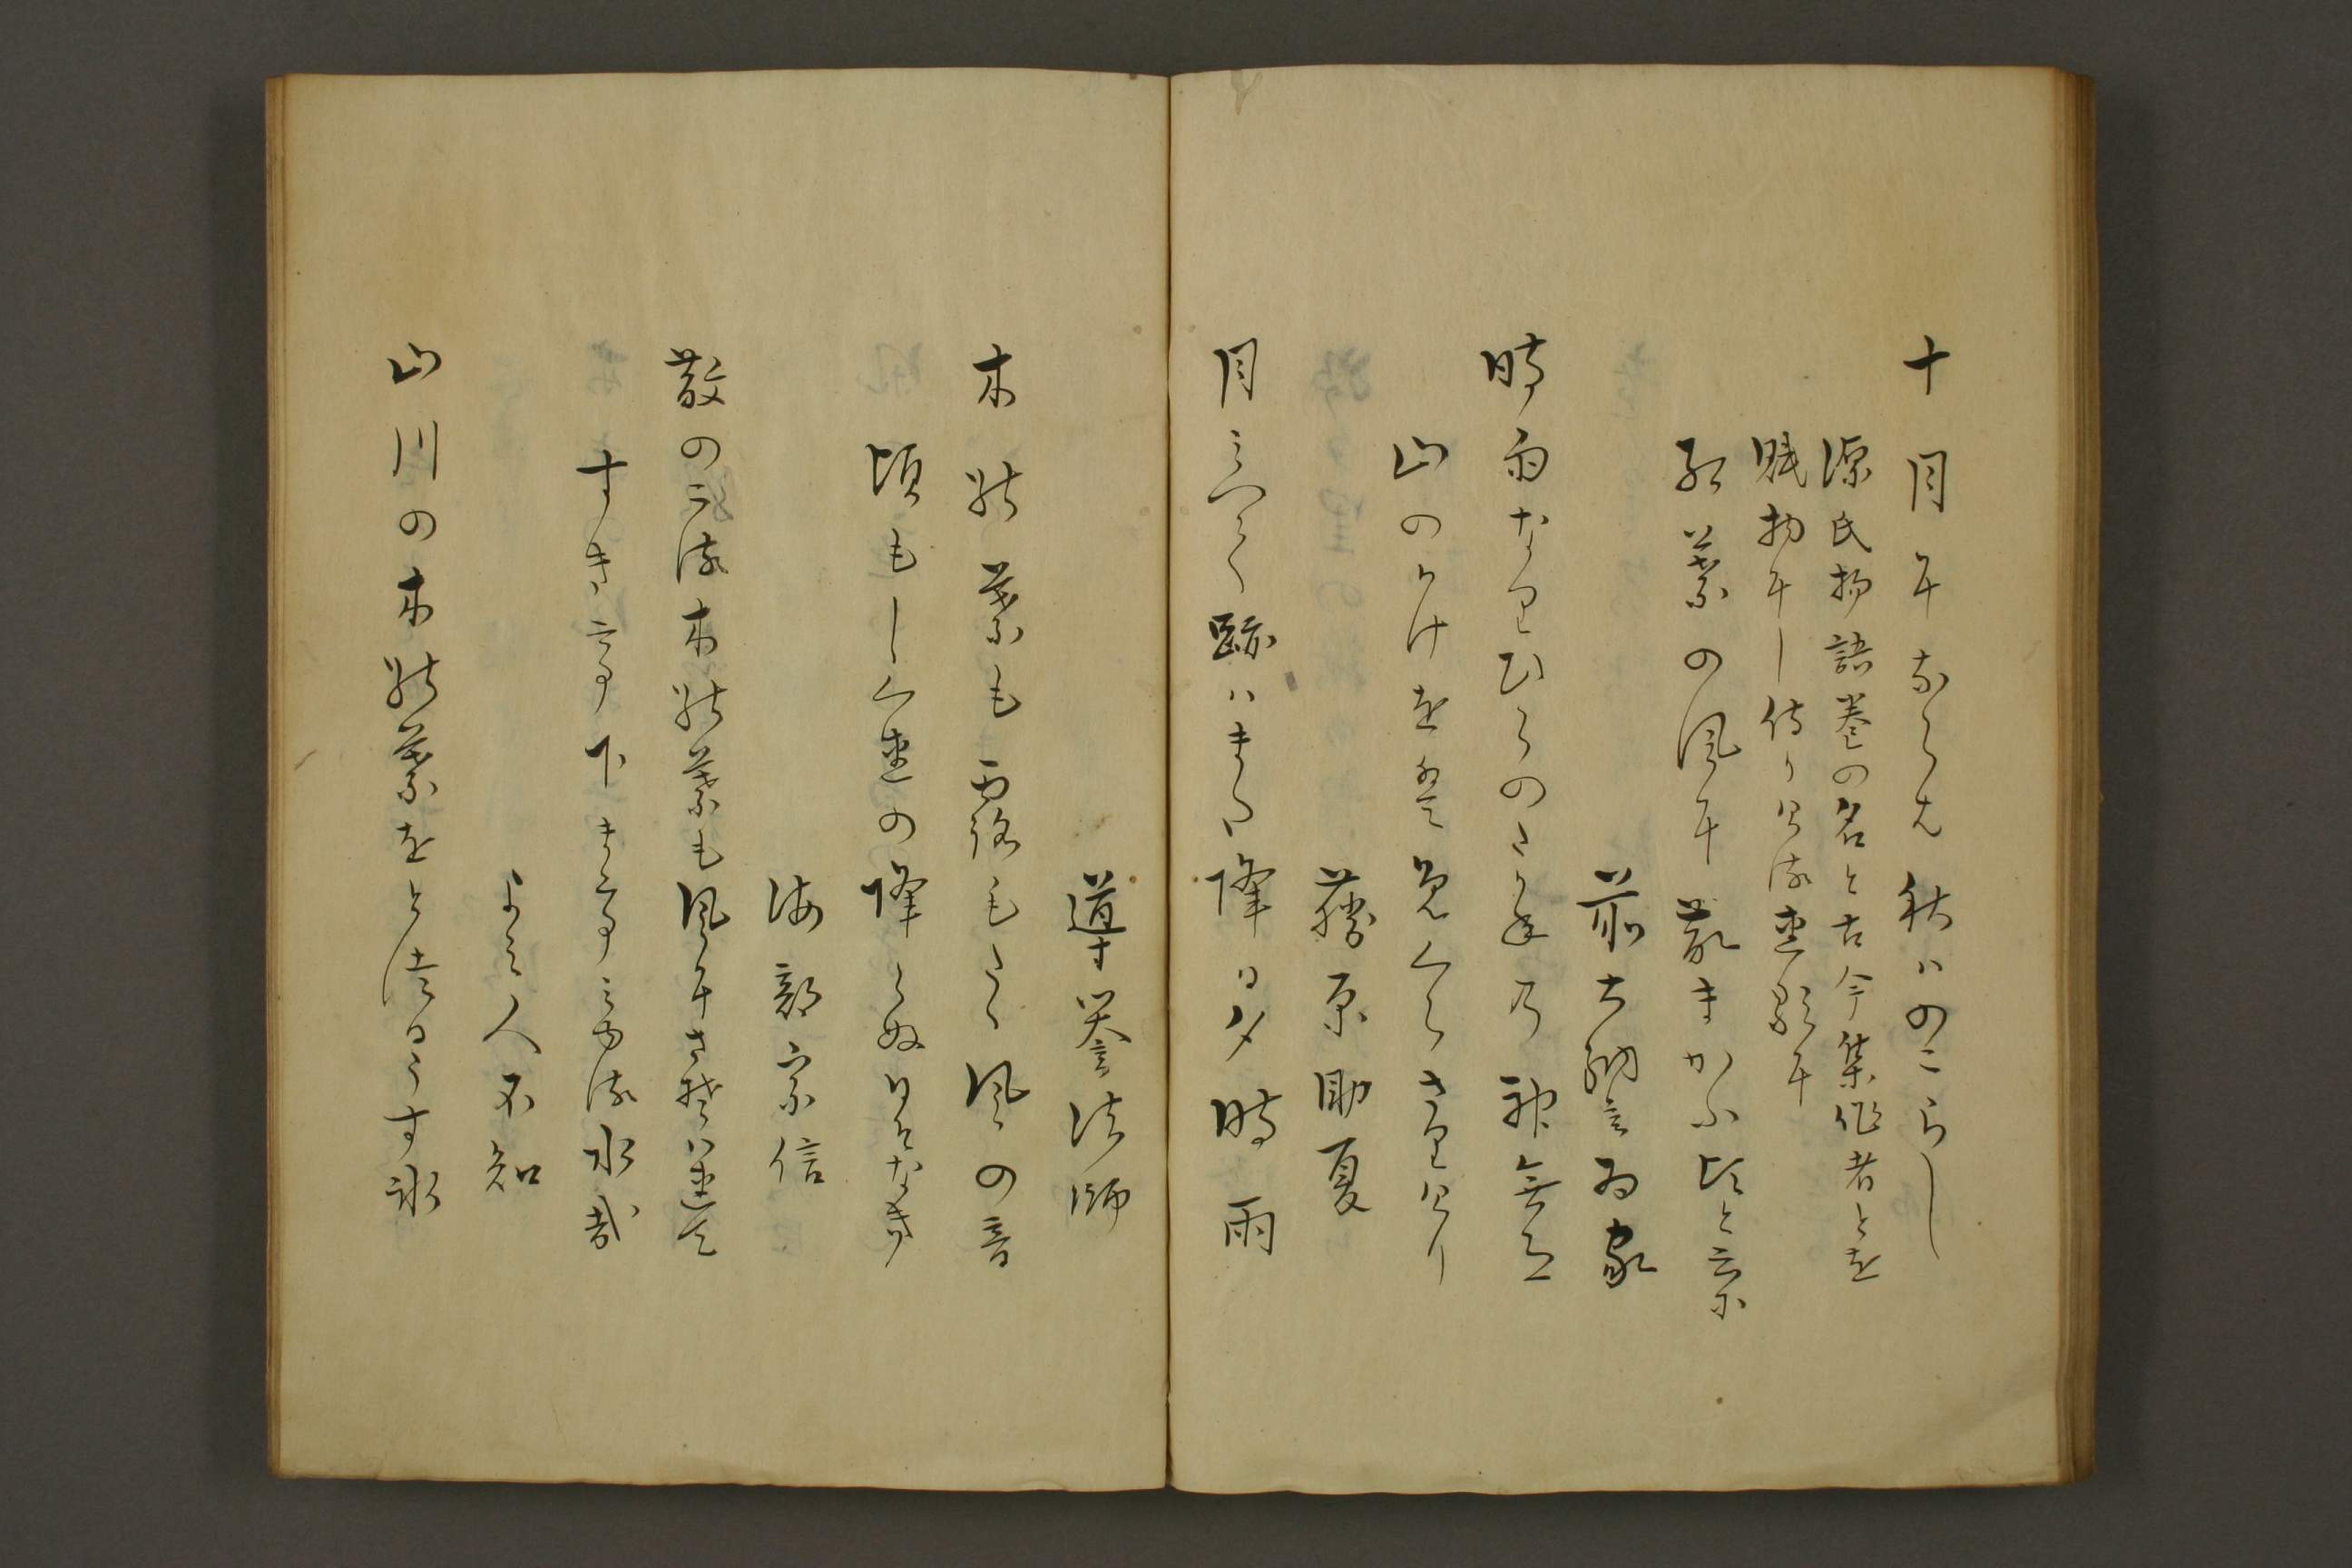 十月になれは秋ハのこらし
源氏物語巻の名と古今集作者とを
賦物にし侍りける連歌に
紅葉の風に散まかふ比と云に
前大納言為家
時雨なりひらのたかねの神無月
山のかけを くらさりけり
藤原助夏
月みえて跡ハまた降ル夕時雨
導誉法師
木の葉も露もたゝ風の音
頃もしくれの降らぬ日そなき
海部宗信
散のこる木の葉も風にさそハれて
すき 下ま みゆる水哉
よみ人不知
山川の木の葉をとつるうす氷